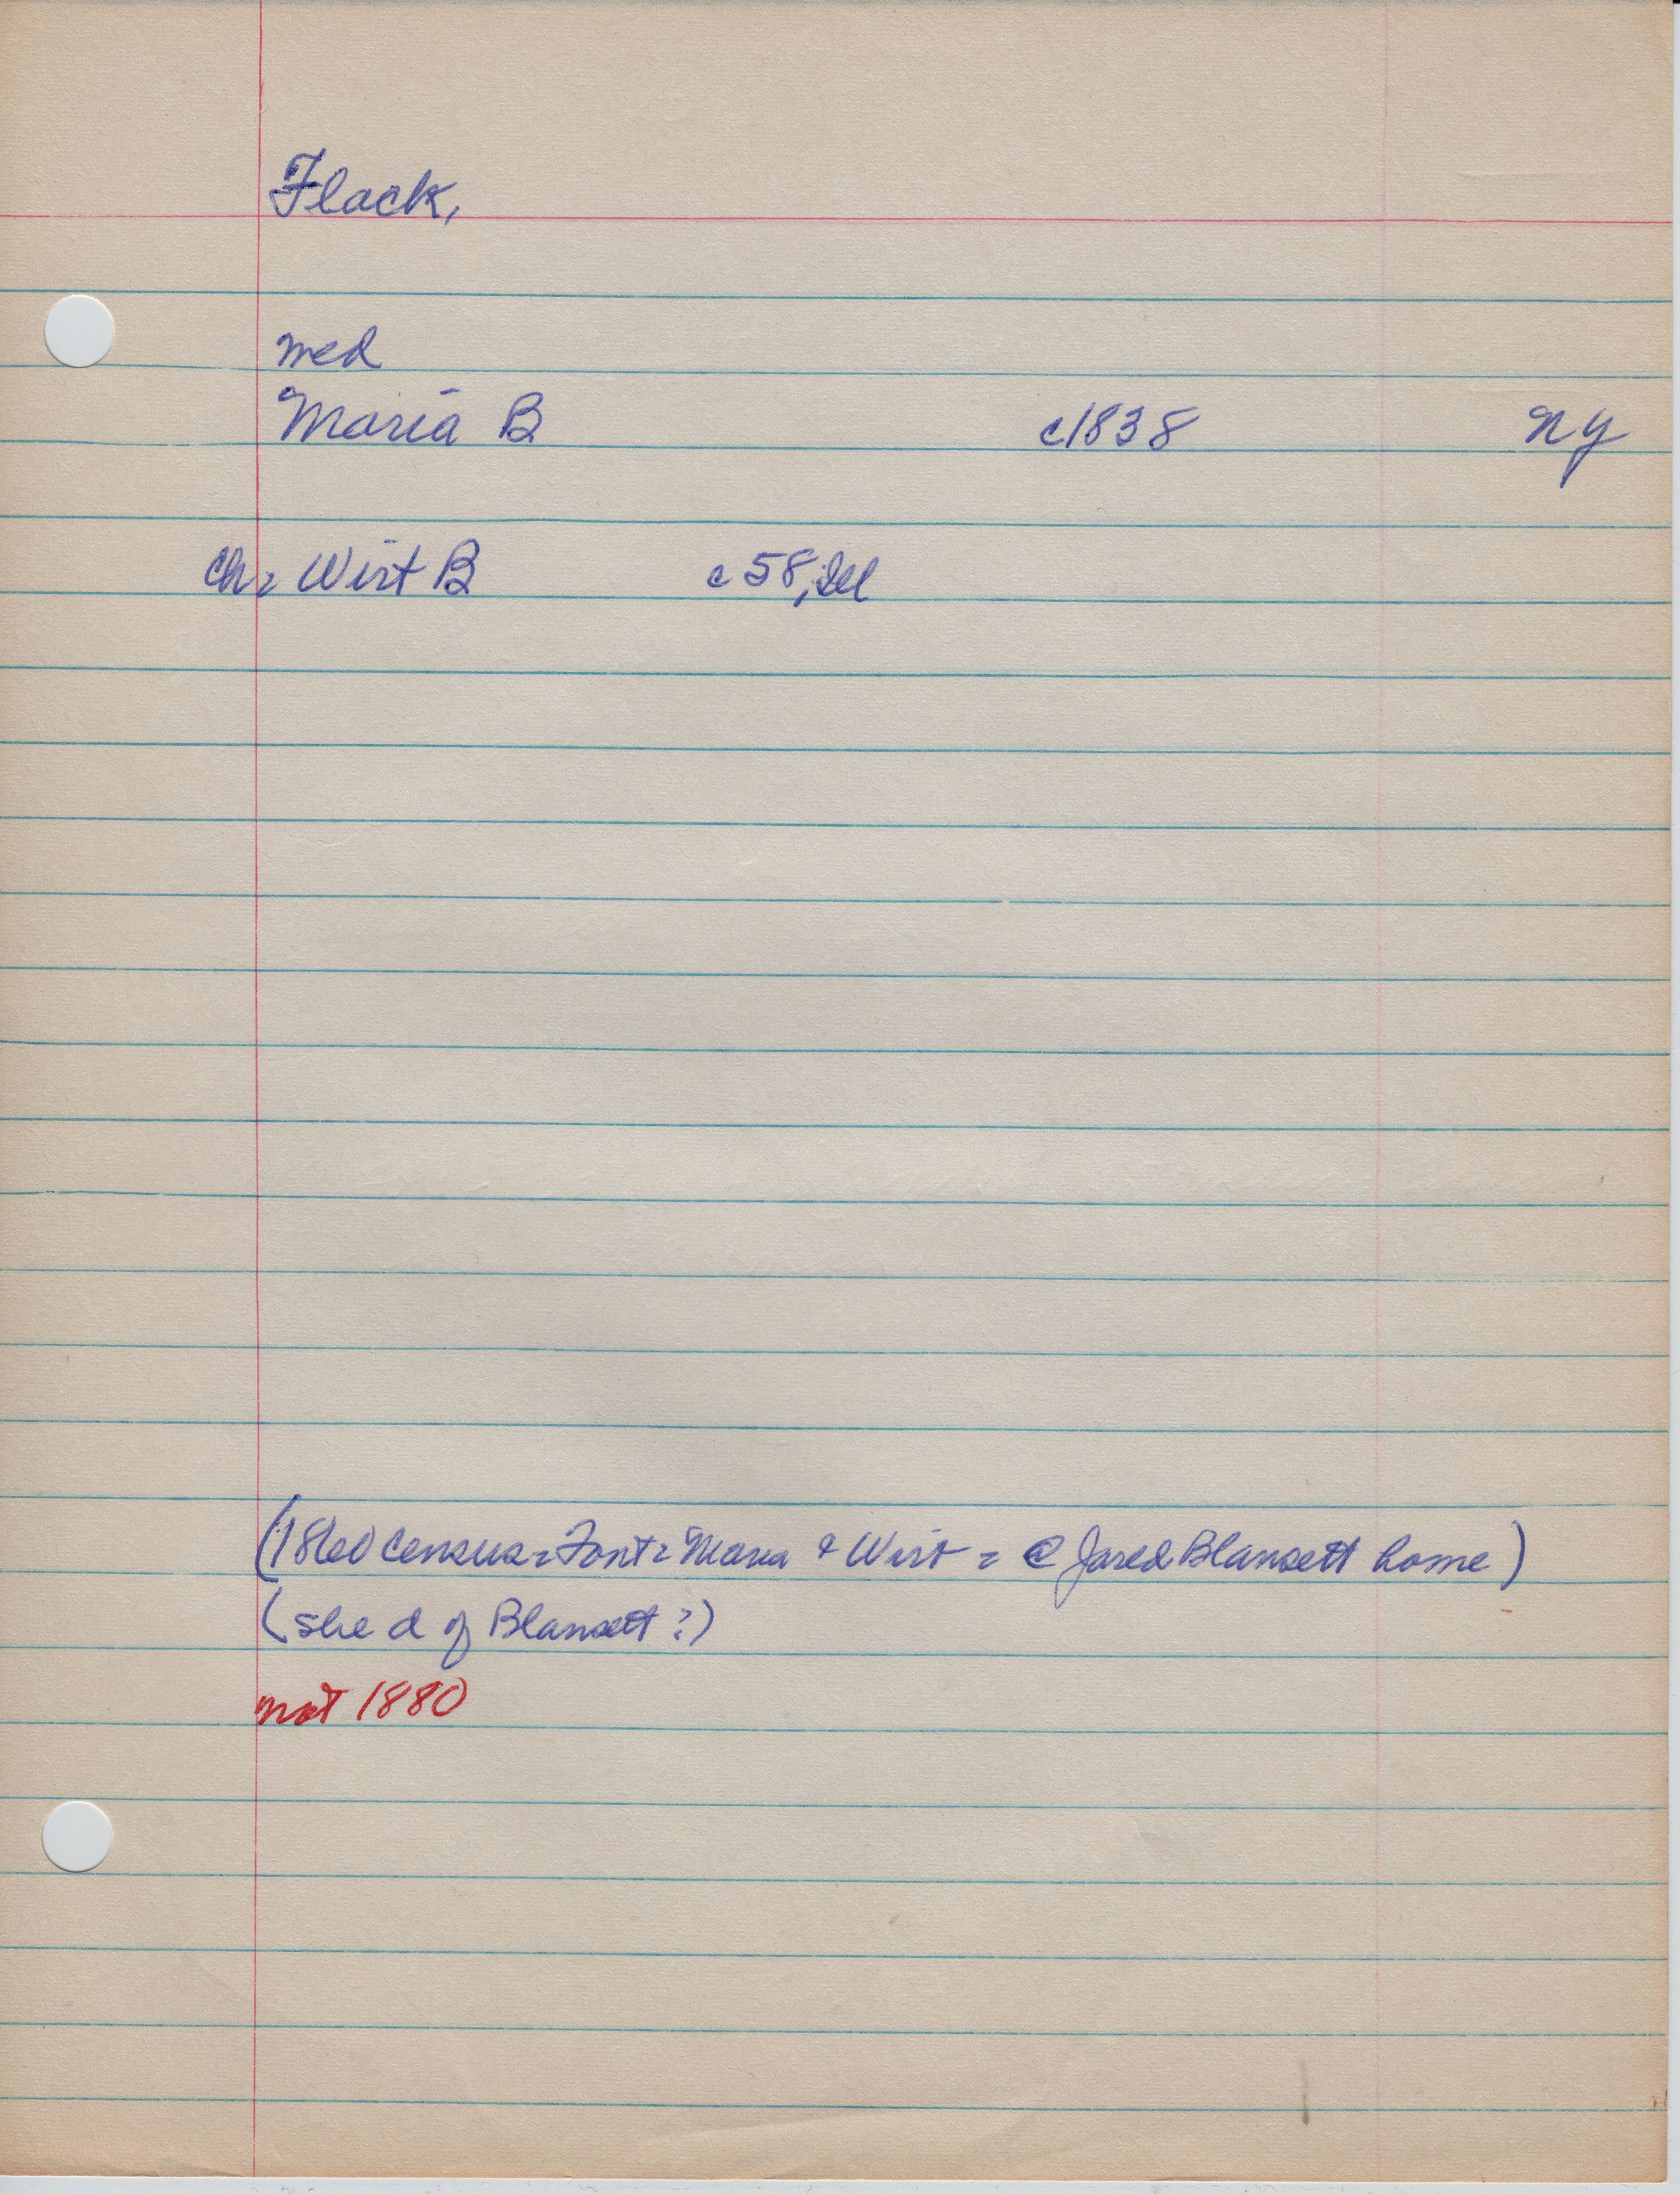 Flack,
med
Maria B c1838 NY
Ch= Wirt B c58, Ill
(1860 Census=Font=Maria & Wirt = @ Jared Blansett home)
(she d of Blansett?)
not 1880